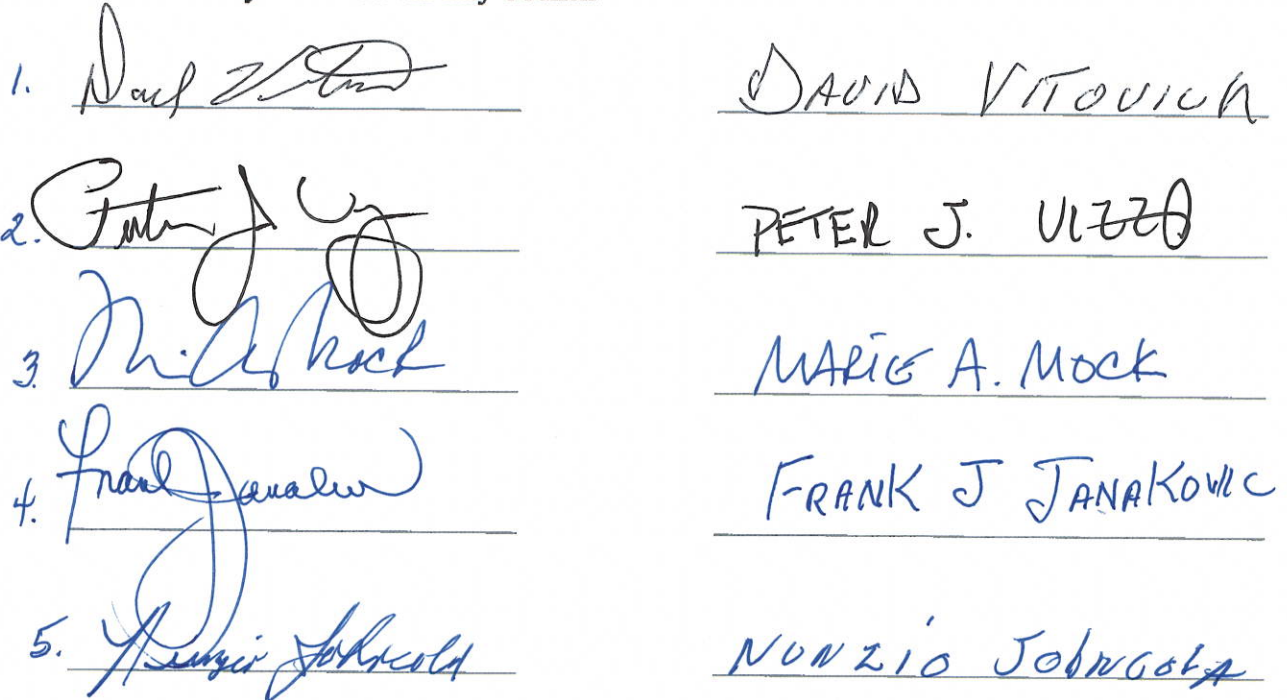 1. David Vitovich DAVID VITOVICH
2. Peter J. Vizzo PETER J. VIZZO
3. M. A. Mock MARIE A. MOCK
4. Frank J Janakovic FRANK J JANAKOVIC
5. Nunzio Johncola NUNZIO JOHNCOLA